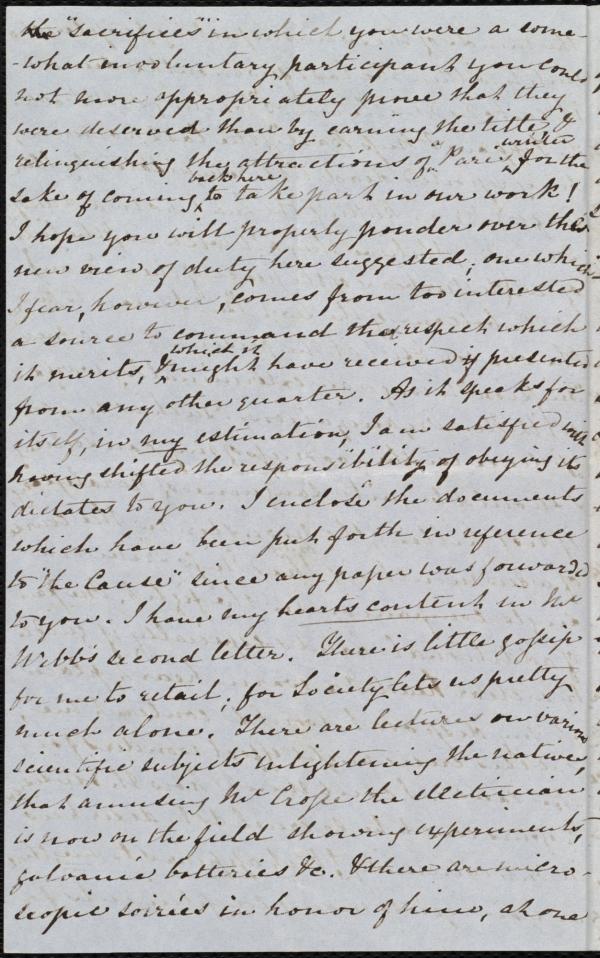 the "sacrifises" in which you were a some-
-what involuntary participant you could
not more appropriately prove that they
were deserved than by earning the title, &
relinquishing the attractions of a Paris winter for the
sake of coming back here to take part in our work!
I hope you will properly ponder over this
new view of duty here suggested; one which
I fear, however, comes from too interested
a source to command the respect which
it merits, & which it might have received if presented
from any other quarter. As it speaks for
itself, in my estimation, I am satisfied with
having shifted the responsibility of obeying its
dictates to you. I enclose the documents
which have been put forth in reference
to "the Cause" since any paper was forwarded
to you. I have my hearts content in Mr
Webb's second letter. There is little gossip
for me to retail; for Society lets us pretty
much alone. There are lectures on various
scientific subjects enlightening the natives,
that amusing Mr Crosse the electrician
is now on the field showing experiments,
galvanic batteries &c. & there are micro-
scopic soirées in honor of him, at one